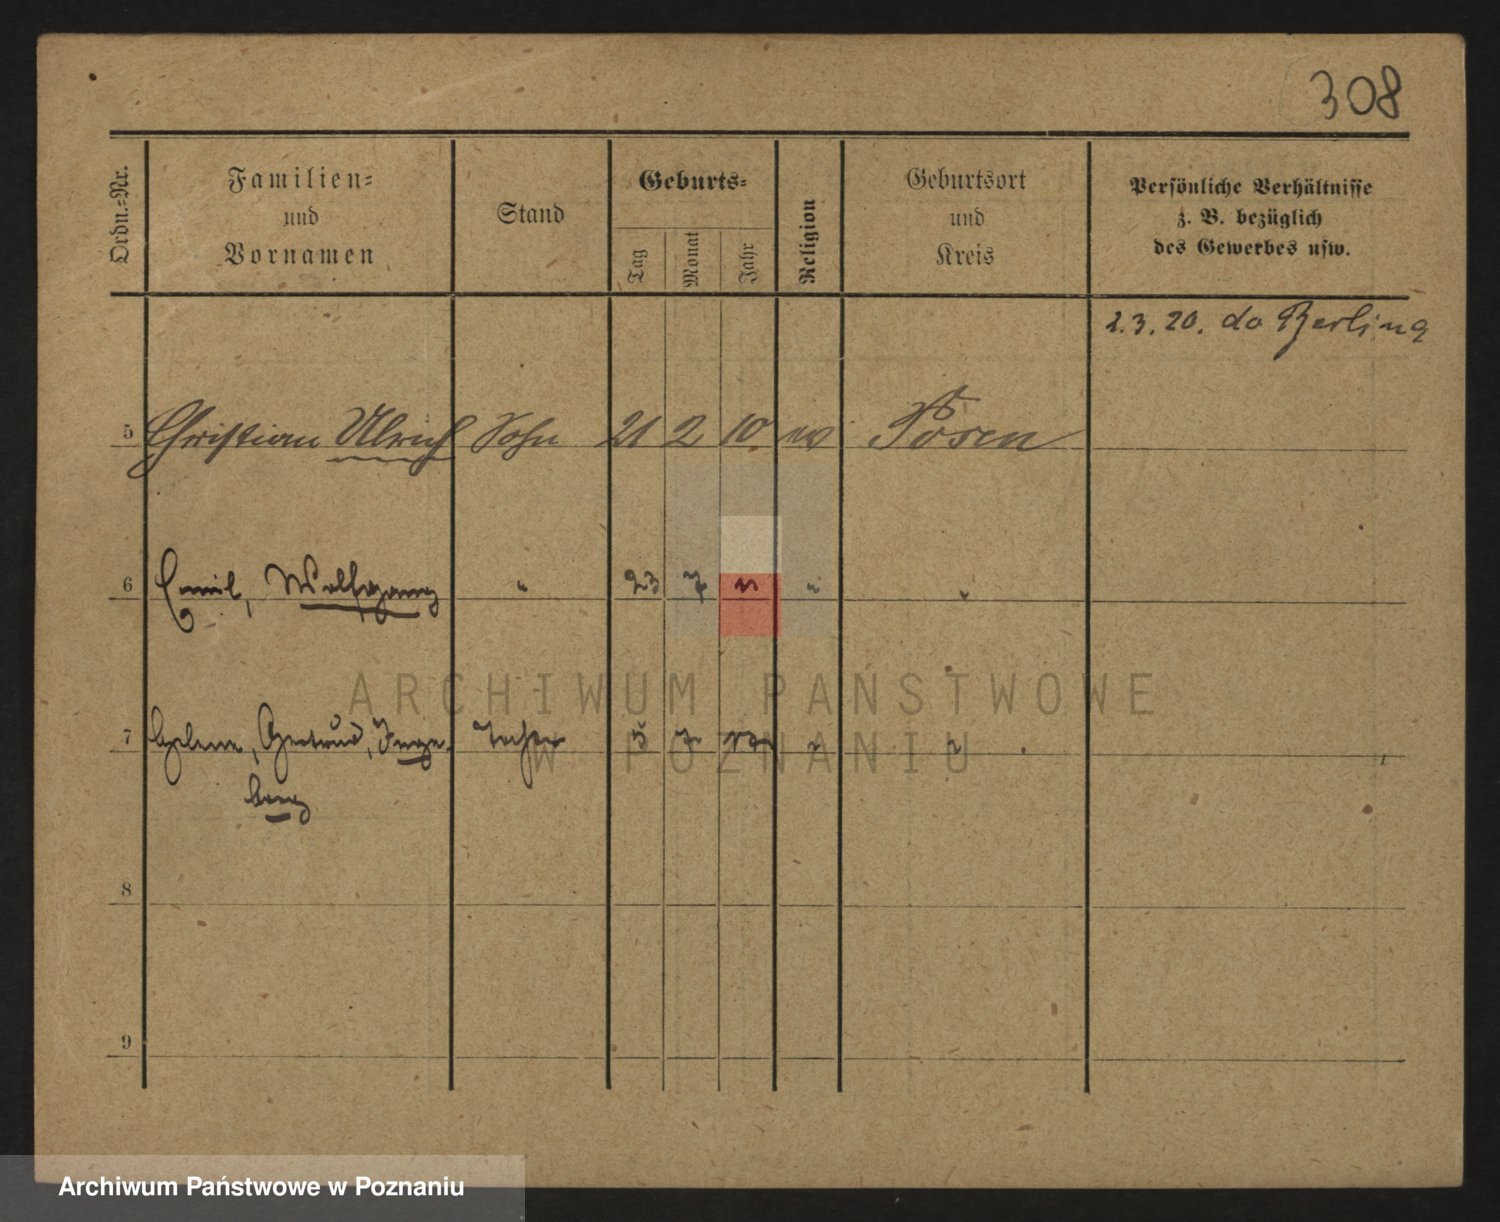 308
Ordn.-Nr.
Familien-
und
Vornamen
Stand
Geburts-
Tag
Monat
Jahr
Religion
Geburtsort
und
Kreis
Persönliche Verhältnisse
z. B. bezüglich
des Gewerbes usw.
2.3.20. do Berlina
5 Christian Ulrich Sohn 21 2 10 ev Posen
6 Emil, Wolfgang " 23 7 11 " "
7 Helene, Gertrud, Inge- Tochter 5 7 " "
borg
8
9
ARCHIWUM PAŃSTWOWE
W POZNANIU
Archiwum Państwowe w Poznaniu